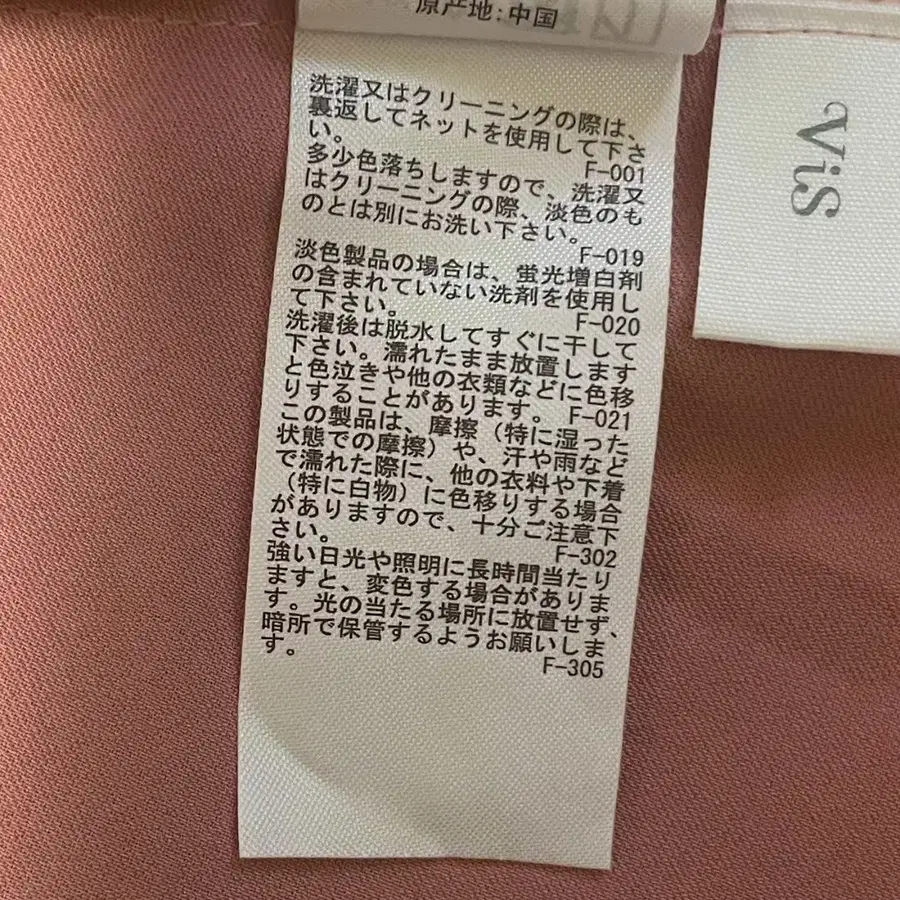 原产地:中国
洗濯又はクリーニングの際は、
裏返してネットを使用して下さ
い。
F-001
多少色落ちしますので、洗濯又
はクリーニングの際、淡色のも
のとは別にお洗い下さい。
F-019
淡色製品の場合は、蛍光増白剤
の含まれていない洗剤を使用し
て下さい。
F-020
洗濯後は脱水してすぐに干して
下さい。濡れたまま放置します
と色泣きや他の衣類などに色移
りすることがあります。 F-021
この製品は、摩擦（特に湿った
状態での摩擦）や、汗や雨など
で濡れた際に、他の衣料や下着
（特に白物）に色移りする場合
がありますので、十分ご注意下
さい。
F-302
強い日光や照明に長時間当たり
ますと、変色する場合がありま
す。光の当たる場所に放置せず、
暗所で保管するようお願いしま
す。
F-305
ViS